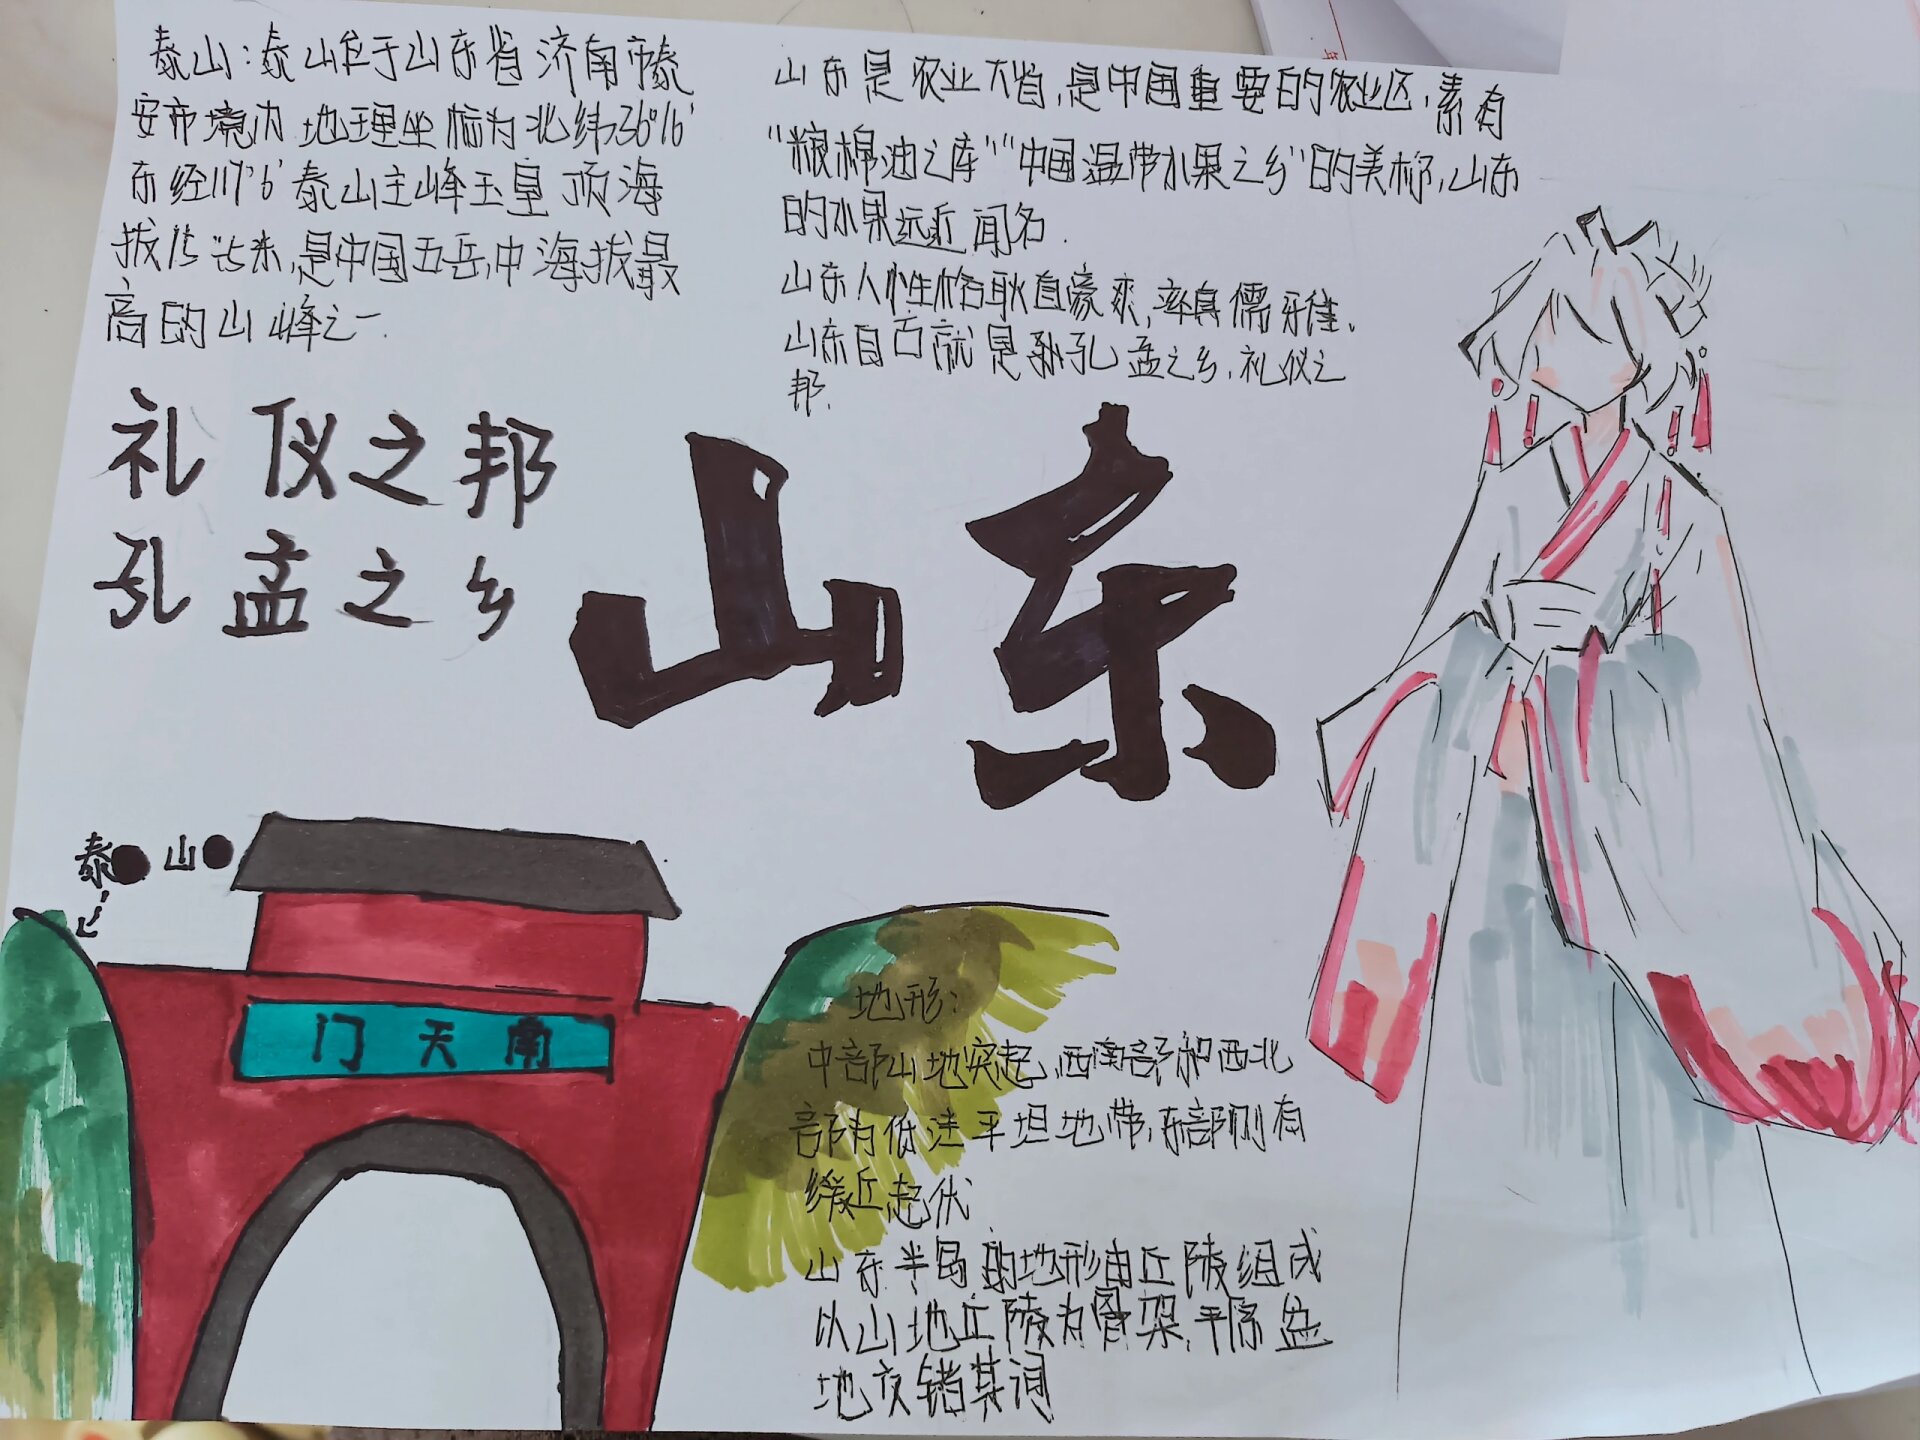 泰山：泰山位于山东省济南市泰
安市境内 地理坐标为北纬36°16′
东经117°6′泰山主峰玉皇顶海
拔15 米,是中国五岳,中海拔最
高的山峰之一.
山东是农业大省,是中国重要的农业区,素有
“粮棉油之库”“中国温带水果之乡”的美称,山东
的水果远近闻名.
山东人性格耿直豪爽,率真儒雅。
山东自古就是 孔孟之乡,礼仪之
邦.
礼仪之邦
孔孟之乡
山东
泰山
门天南
地形：
中部山地突起,西南部和西北
部为低洼平坦地带,东部则有
缓丘起伏
山东半岛的地形由丘陵组成
以山地丘陵为骨架,平原盆
地交错其间